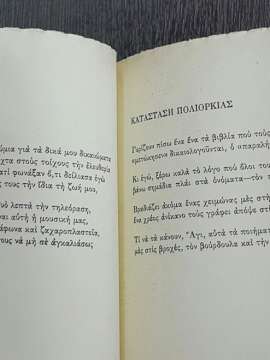 ύμια γιὰ τὰ δικά μου δικαιώματα
χτα στοὺς τοίχους τὴν ἐλευθερία
ατί φωνάξαν ὅ,τι δείλιασα ἐγὼ
ς τους τὴν ἴδια τὴ ζωή μου,
υὸ λεπτὰ τὴν τηλεόραση,
ίναι αὐτὴ ἡ μουσική μας,
άφωνα καὶ ζαχαροπλαστεῖα,
ους νὰ μὴ σὲ ἀγκαλιάσω;
ΚΑΤΑΣΤΑΣΗ ΠΟΛΙΟΡΚΙΑΣ
Γυρίζουν πίσω ἕνα ἕνα τὰ βιβλία ποὺ τοὺς
δικαιολογοῦνται, ὁ παραλή
Κι ἐγώ, ξέρω καλὰ τὸ λόγο ποὺ ὅλοι του
βάνω σημάδια πλάι στὰ ὀνόματα—τὸν
Βραδιάζει ἀκόμα ἕνας χειμώνας μὲς στὴ
ἕνα χρέος ἀνίκανο τοὺς γράφει ἀπόψε στὴ
Τί νὰ τὰ κάνουν, "Αγι, αὐτὰ τὰ ποιήματ
μὲς στὶς βροχές, τὸν βούρδουλα καὶ τὴν